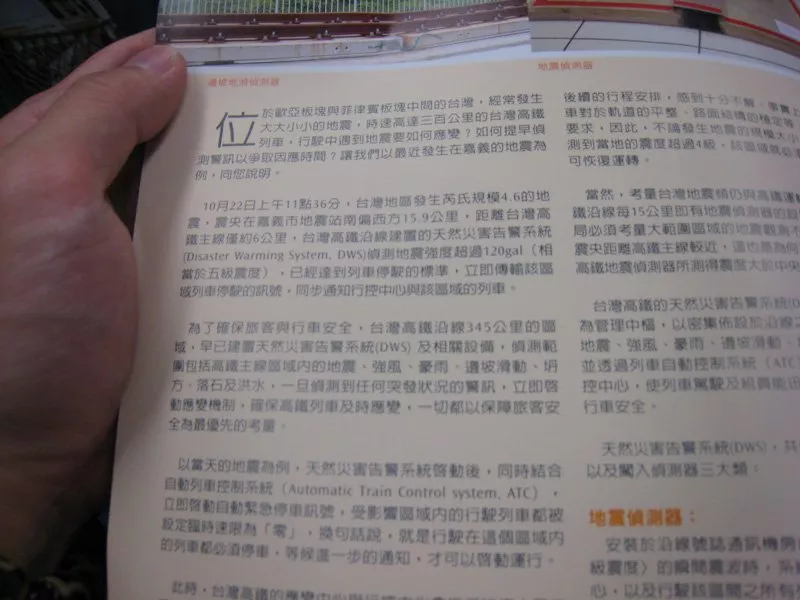 邊坡地滑偵測器
地震偵測器
位於歐亞板塊與菲律賓板塊中間的台灣，經常發生
大大小小的地震，時速高達三百公里的台灣高鐵
列車，行駛中遇到地震要如何應變？如何提早偵
測警訊以爭取因應時間？讓我們以最近發生在嘉義的地震為
例，向您說明。
10月22日上午11點36分，台灣地區發生芮氏規模4.6的地
震，震央在嘉義市地震站南偏西方15.9公里，距離台灣高
鐵主線僅約6公里，台灣高鐵沿線建置的天然災害告警系統
(Disaster Warming System, DWS)偵測地震強度超過120gal（相
當於五級震度），已經達到列車停駛的標準，立即傳輸該區
域列車停駛的訊號，同步通知行控中心與該區域的列車。
為了確保旅客與行車安全，台灣高鐵沿線345公里的區
域，早已建置天然災害告警系統(DWS) 及相關設備，偵測範
圍包括高鐵主線區域內的地震、強風、豪雨、邊坡滑動、坍
方、落石及洪水，一旦偵測到任何突發狀況的警訊，立即啓
動應變機制，確保高鐵列車及時應變，一切都以保障旅客安
全為最優先的考量。
以當天的地震為例，天然災害告警系統啓動後，同時結合
自動列車控制系統（Automatic Train Control system, ATC），
立即啓動自動緊急停車訊號，受影響區域內的行駛列車都被
設定臨時速限為「零」，換句話說，就是行駛在這個區域內
的列車都必須停車，等候進一步的通知，才可以啓動運行。
此時，台灣高鐵的應變中心與行控中心
後續的行程安排，感到十分不解。事實上
車對於軌道的平整、路面結構的穩定等
要求，因此，不論發生地震的規模大小
測到當地的震度超過4級，該區域就
可恢復運轉。
當然，考量台灣地震頻仍與高鐵運
鐵沿線每15公里即有地震偵測器的設
局必須考量大範圍區域的地震觀測不
震央距離高鐵主線較近，這也是為何
高鐵地震偵測器所測得震度大於中央
台灣高鐵的天然災害告警系統(D
為管理中樞，以密集佈設於沿線之
地震、強風、豪雨、邊坡滑動、
並透過列車自動控制系統（ATC
控中心，使列車駕駛及組員能迅
行車安全。
天然災害告警系統(DWS)，共
以及闖入偵測器三大類：
地震偵測器：
安裝於沿線號誌通訊機房
級震度）的瞬間震波時，系
心，以及行駛該區間之所有